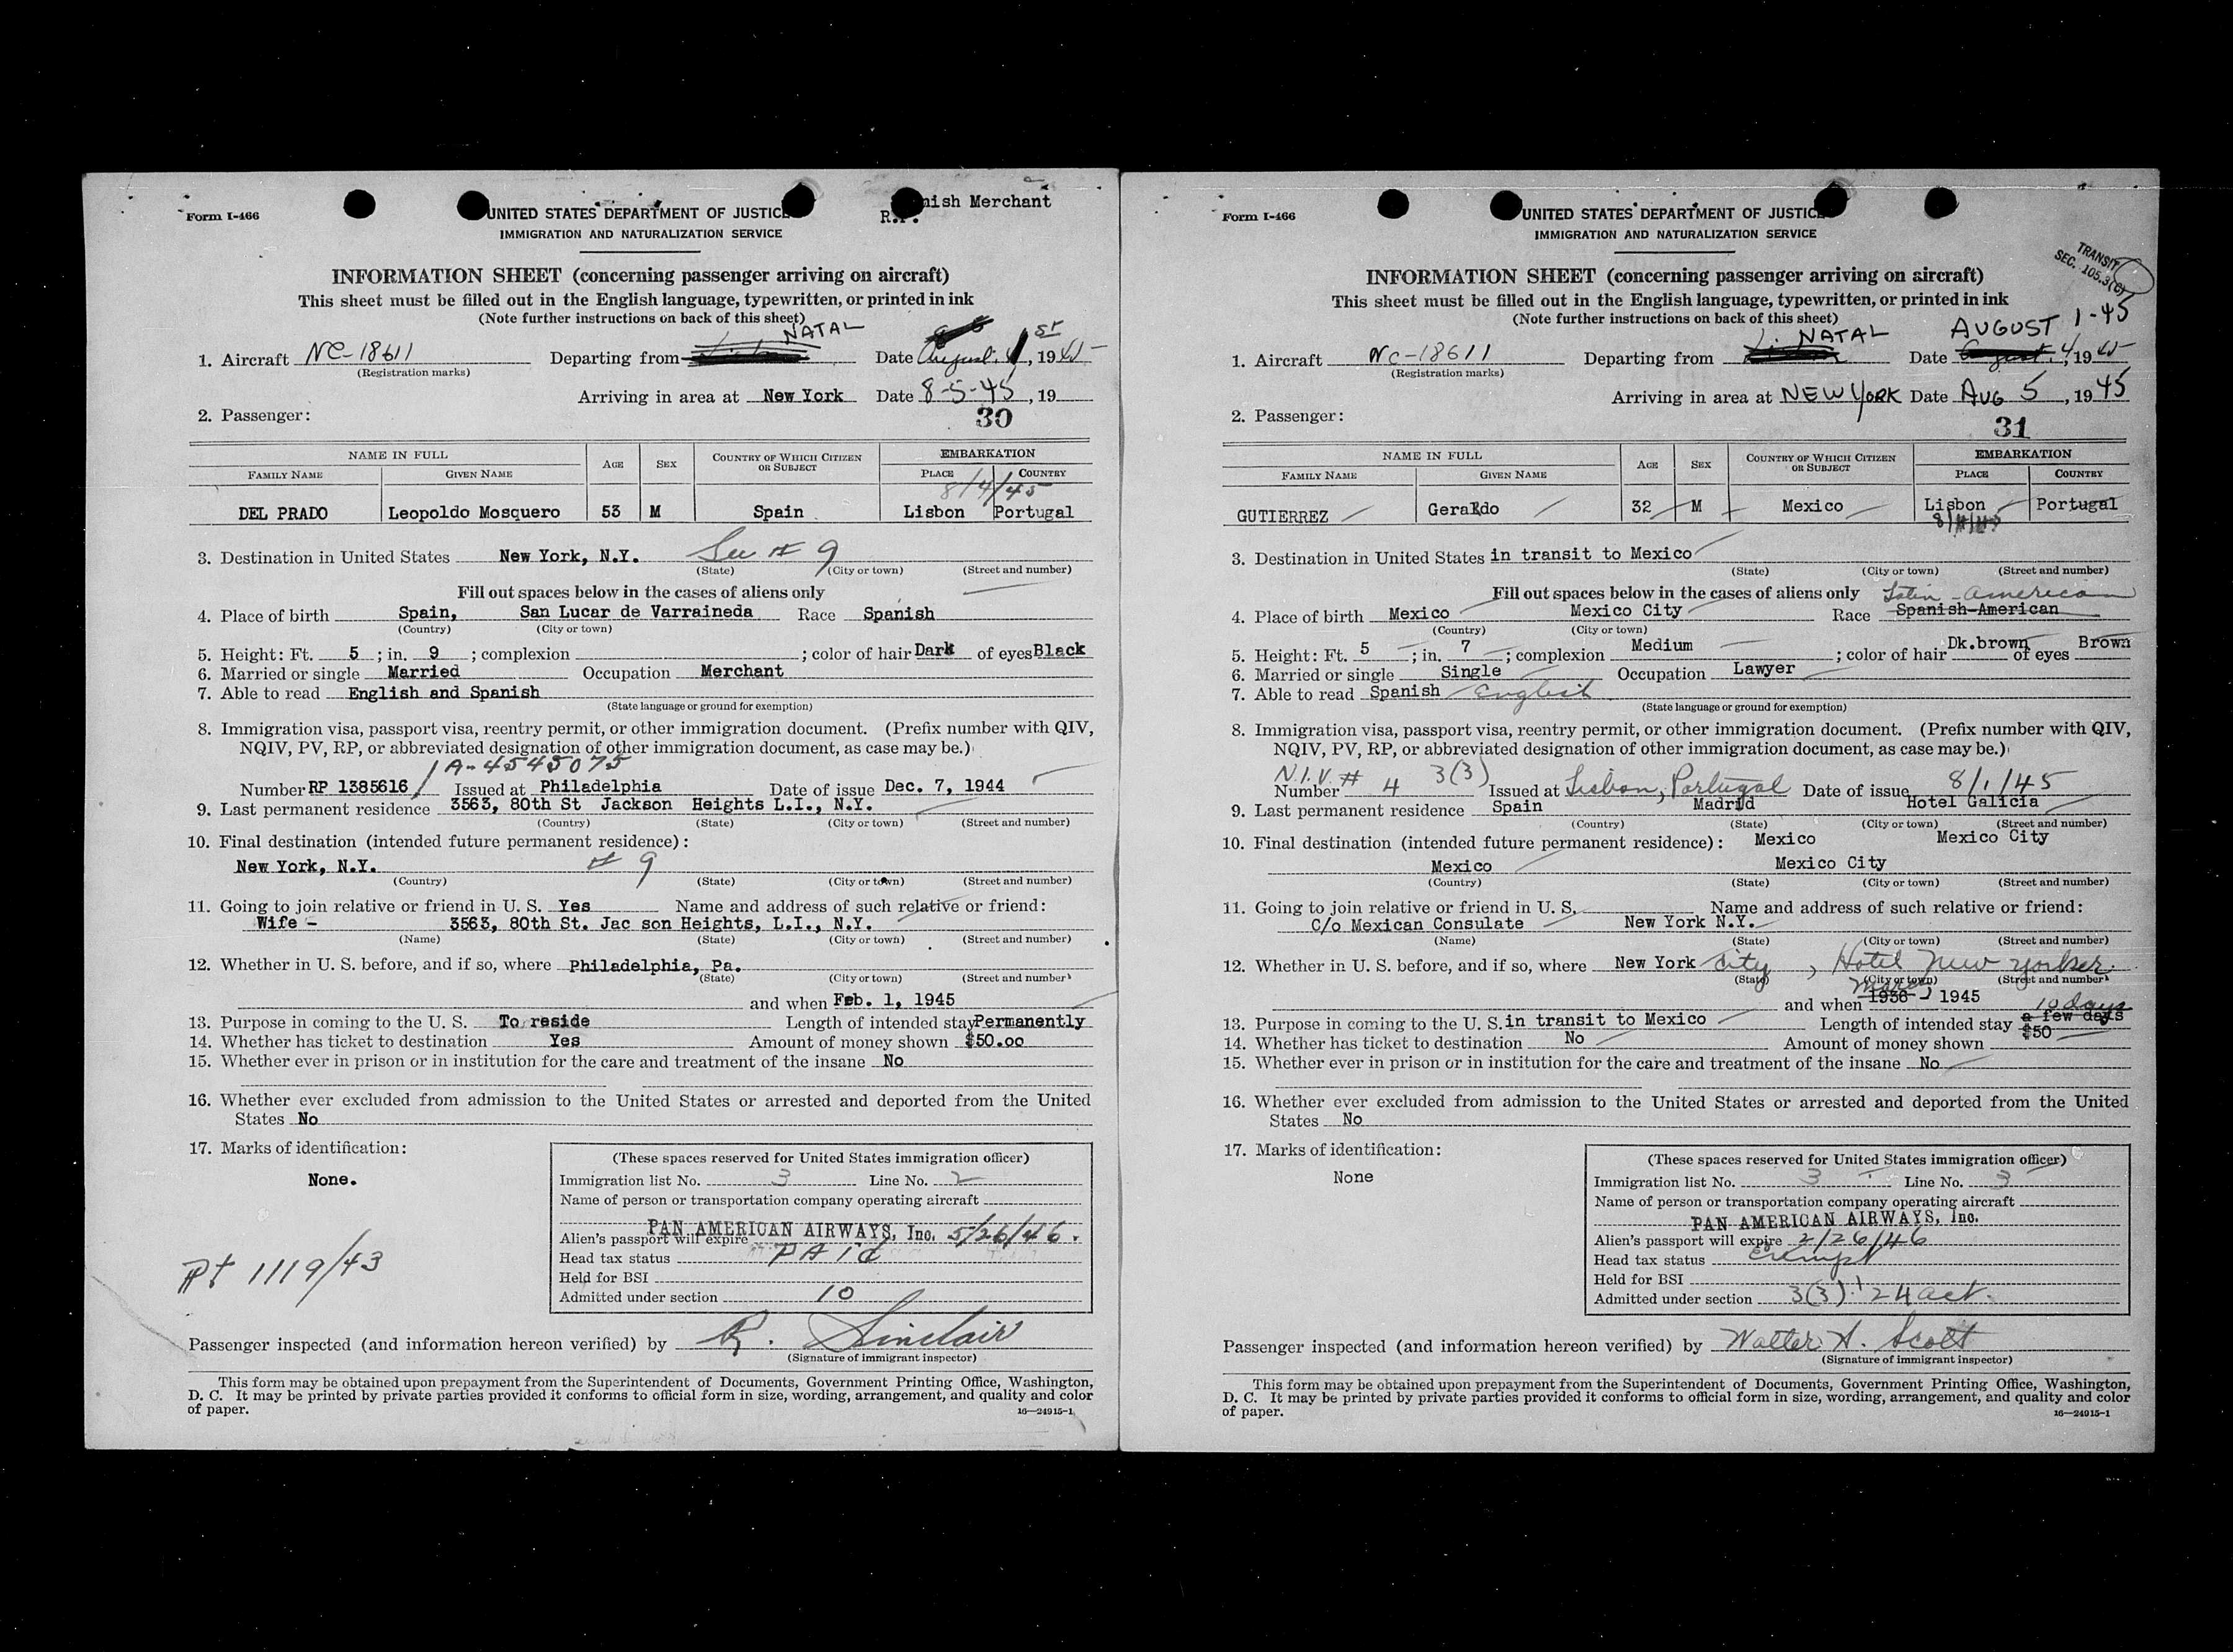 Form I-466
nish Merchant
R.P.
UNITED STATES DEPARTMENT OF JUSTICE
IMMIGRATION AND NATURALIZATION SERVICE
INFORMATION SHEET (concerning passenger arriving on aircraft)
This sheet must be filled out in the English language, typewritten, or printed in ink
(Note further instructions on back of this sheet)
1. Aircraft NC-18611 Departing from NATAL Date August 1st, 1945
(Registration marks)
Arriving in area at New York Date 8-5-45, 19
2. Passenger:
30
NAME IN FULL AGE SEX COUNTRY OF WHICH CITIZEN OR SUBJECT EMBARKATION
FAMILY NAME GIVEN NAME PLACE COUNTRY
8/4/45
DEL PRADO Leopoldo Mosquero 53 M Spain Lisbon Portugal
3. Destination in United States New York, N.Y. See # 9
(State) (City or town) (Street and number)
Fill out spaces below in the cases of aliens only
4. Place of birth Spain, San Lucar de Varraineda Race Spanish
(Country) (City or town)
5. Height: Ft. 5 ; in. 9 ; complexion ; color of hair Dark of eyes Black
6. Married or single Married Occupation Merchant
7. Able to read English and Spanish
(State language or ground for exemption)
8. Immigration visa, passport visa, reentry permit, or other immigration document. (Prefix number with QIV,
NQIV, PV, RP, or abbreviated designation of other immigration document, as case may be.)
A-4545075
Number RP 1385616 Issued at Philadelphia Date of issue Dec. 7, 1944
9. Last permanent residence 3563, 80th St Jackson Heights L.I., N.Y.
(Country) (State) (City or town) (Street and number)
10. Final destination (intended future permanent residence):
New York, N.Y. # 9
(Country) (State) (City or town) (Street and number)
11. Going to join relative or friend in U. S. Yes Name and address of such relative or friend:
Wife - 3563, 80th St. Jac son Heights, L.I., N.Y.
(Name) (State) (City or town) (Street and number)
12. Whether in U. S. before, and if so, where Philadelphia, Pa.
(State) (City or town) (Street and number)
and when Feb. 1, 1945
13. Purpose in coming to the U. S. To reside Length of intended stay Permanently
14. Whether has ticket to destination Yes Amount of money shown $50.oo
15. Whether ever in prison or in institution for the care and treatment of the insane No
16. Whether ever excluded from admission to the United States or arrested and deported from the United
States No
17. Marks of identification:
None.
Pt 1119/43
(These spaces reserved for United States immigration officer)
Immigration list No. 3 Line No. 2
Name of person or transportation company operating aircraft
PAN AMERICAN AIRWAYS, Inc.
Alien's passport will expire 5/26/46.
Head tax status PAId
Held for BSI
Admitted under section 10
Passenger inspected (and information hereon verified) by R. Sinclair
(Signature of immigrant inspector)
This form may be obtained upon prepayment from the Superintendent of Documents, Government Printing Office, Washington,
D. C. It may be printed by private parties provided it conforms to official form in size, wording, arrangement, and quality and color
of paper. 16—24915-1
Form I-466
UNITED STATES DEPARTMENT OF JUSTICE
IMMIGRATION AND NATURALIZATION SERVICE
TRANSIT
SEC. 105.3(C)
INFORMATION SHEET (concerning passenger arriving on aircraft)
This sheet must be filled out in the English language, typewritten, or printed in ink
(Note further instructions on back of this sheet)
AUGUST 1-45
1. Aircraft NC-18611 Departing from NATAL Date August 4, 1945
(Registration marks)
Arriving in area at NEW YORK Date AUG 5, 1945
2. Passenger:
31
NAME IN FULL AGE SEX COUNTRY OF WHICH CITIZEN OR SUBJECT EMBARKATION
FAMILY NAME GIVEN NAME PLACE COUNTRY
GUTIERREZ Geraldo 32 M Mexico Lisbon Portugal
3. Destination in United States in transit to Mexico
(State) (City or town) (Street and number)
Fill out spaces below in the cases of aliens only Latin-American
4. Place of birth Mexico Mexico City Race Spanish-American
(Country) (City or town)
5. Height: Ft. 5 ; in. 7 ; complexion Medium ; color of hair Dk.brown of eyes Brown
6. Married or single Single Occupation Lawyer
7. Able to read Spanish English
(State language or ground for exemption)
8. Immigration visa, passport visa, reentry permit, or other immigration document. (Prefix number with QIV,
NQIV, PV, RP, or abbreviated designation of other immigration document, as case may be.)
N.I.V. # 3(3)
Number 4 Issued at Lisbon, Portugal Date of issue 8/1/45
9. Last permanent residence Spain Madrid Hotel Galicia
(Country) (State) (City or town) (Street and number)
10. Final destination (intended future permanent residence): Mexico Mexico City
Mexico Mexico City
(Country) (State) (City or town) (Street and number)
11. Going to join relative or friend in U. S. Name and address of such relative or friend:
C/o Mexican Consulate New York N.Y.
(Name) (State) (City or town) (Street and number)
12. Whether in U. S. before, and if so, where New York City, Hotel New Yorker
(State) (City or town) (Street and number)
and when 1936 - 1945
10 days
13. Purpose in coming to the U. S. in transit to Mexico Length of intended stay a few days
14. Whether has ticket to destination No Amount of money shown $50
15. Whether ever in prison or in institution for the care and treatment of the insane No
16. Whether ever excluded from admission to the United States or arrested and deported from the United
States No
17. Marks of identification:
None
(These spaces reserved for United States immigration officer)
Immigration list No. 3 Line No. 3
Name of person or transportation company operating aircraft
PAN AMERICAN AIRWAYS, Inc.
Alien's passport will expire 2/26/46
Head tax status Exempt
Held for BSI
Admitted under section 3(3) '24 act.
Passenger inspected (and information hereon verified) by Walter A. Scott
(Signature of immigrant inspector)
This form may be obtained upon prepayment from the Superintendent of Documents, Government Printing Office, Washington,
D. C. It may be printed by private parties provided it conforms to official form in size, wording, arrangement, and quality and color
of paper. 16—24915-1